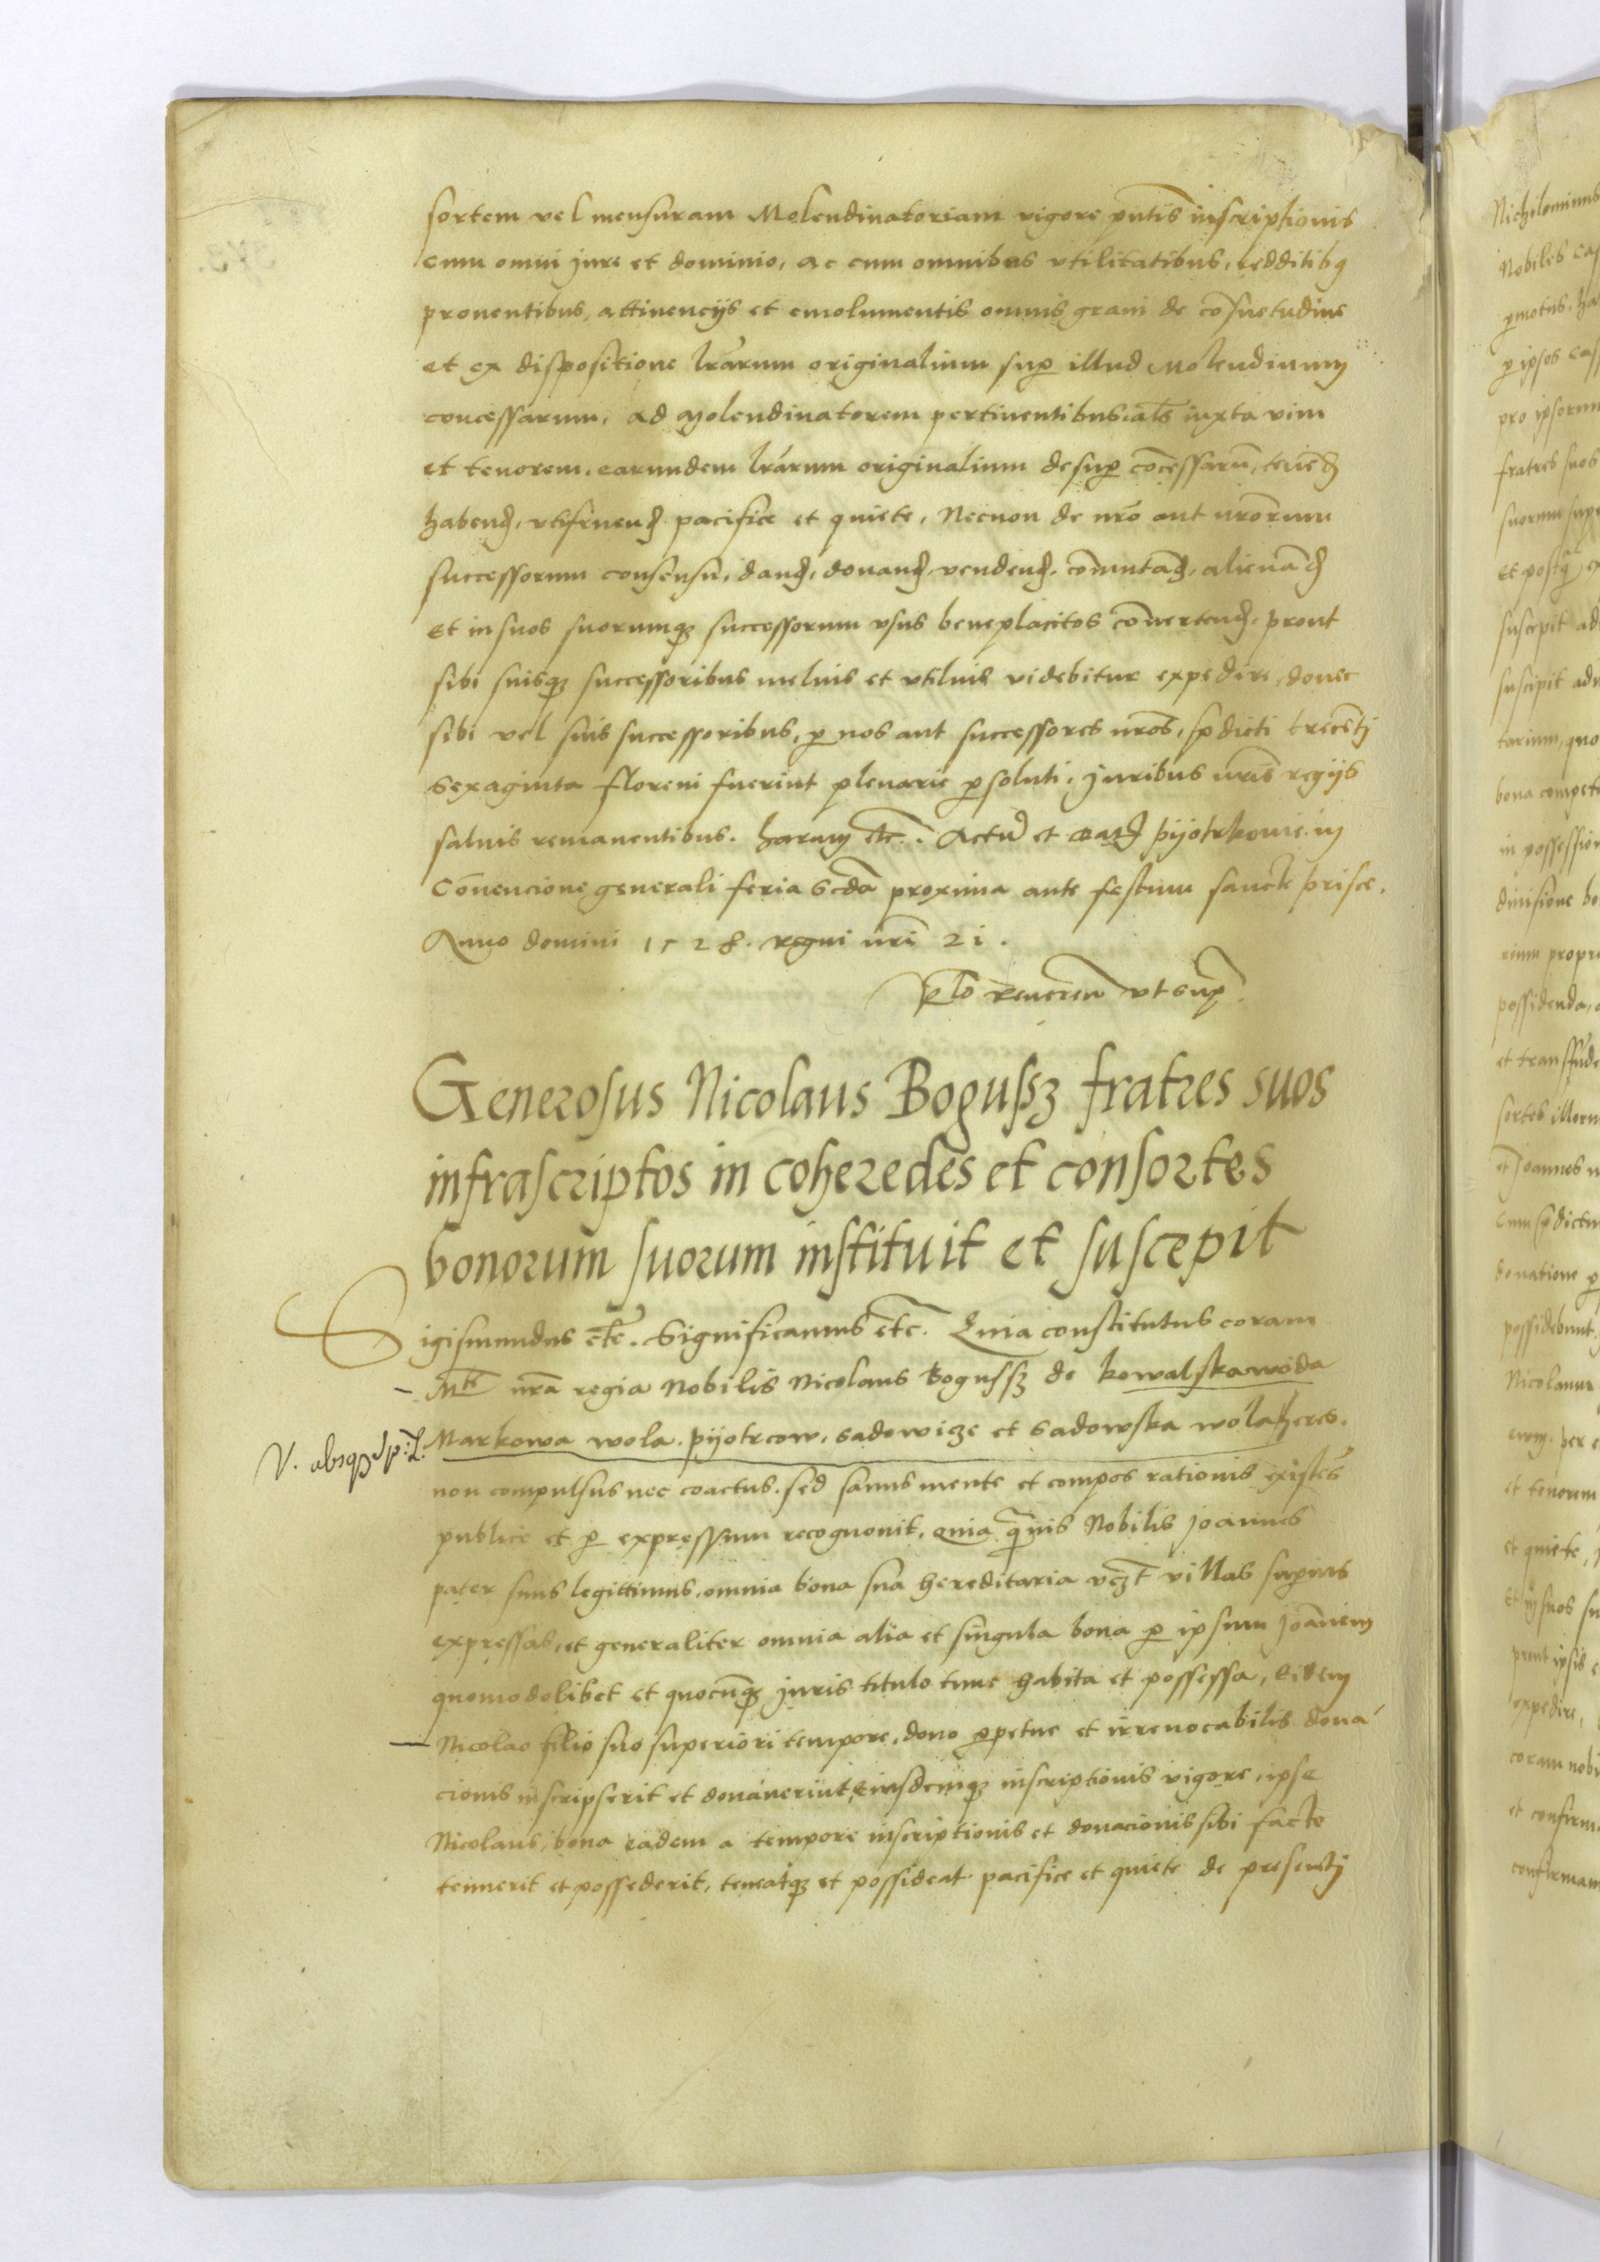 sortem vel mensuram Molendinatoriam vigore pntis inscriptionis
cum omni jure et dominio, ac cum omnibus vtilitatibus, redditibq
prouentibus, attinencijs et emolumentis omnis grani de cōsuetudine
et ex dispositione lrārum originalium suꝑ illud Molendinum
concessarum, ad Molendinatorem pertinentibus als iuxta vim
et tenorem earundem lrārum originalium desuꝑ cōcessarū, tenēd
habend, vtifruend pacifice et quiete, Necnon de nrō aut nrōrum
successorum consensu, dand, donand, vendend, cōmutād, alienād
Et in suos suorumqꝫ successorum vsus beneplacitos cōuertend, prout
sibi suisqꝫ successoribus melius et vtilius videbitur expedire, donec
sibi vel suis successoribus, ꝑ nos aut successores nrōs, p̄dicti trecēti
sexaginta floreni fuerint plenarie ꝑsoluti, Juribus nris regijs
saluis remanentibus. harum etc. Actū et datū pijotrkouie in
Cōuencione generali feria scdā proxima ante festum sancte prisce.
Anno domini 1528. regni nri 21.
Rlo reueren vt supra
Generosus Nicolaus Bogussꝫ fratres suos
infrascriptos in coheredes et consortes
bonorum suorum instituit et suscepit
Sigismundus etc. Significamus etc. Quia constitutus coram
Mte nrā regia Nobilis Nicolaus Bogussꝫ de kowalskawoda
Markowa wola, pijotrcow, sadowicze et sadowska wola heres,
V. absqꝫ
non compulsus nec coactus, sed sanus mente et compos rationis existēs
publice et ꝑ expressum recognouit, Quia quāuis Nobilis Joannes
pater suus legittimus, omnia bona sua hereditaria vcꝫt villas superius
expressas, et generaliter omnia alia et singula bona ꝑ ipsum Joānem
quomodolibet et quocūqꝫ juris titulo tunc habita et possessa, Eidem
Nicolao filio suo superiori tempore, dono ꝑpetue et irreuocabilis dona
cionis inscripserit et donauerint, eiusdemqꝫ inscriptionis vigore, ipse
Nicolaus, bona eadem a tempore inscriptionis et donacionis sibi facte
tenuerit et possederit, teneatqꝫ et possideat pacifice et quiete de presenti